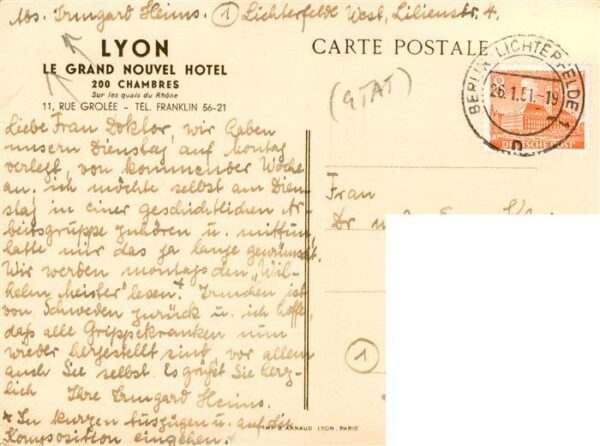 Abs. Irmgard Heims. 1 Lichterfelde West, Lilienstr. 4.
LYON
LE GRAND NOUVEL HOTEL
200 CHAMBRES
Sur les quais du Rhône
11, RUE GROLÉE - TÉL. FRANKLIN 56-21
CARTE POSTALE
BERLIN-LICHTERFELDE 1
26.1.51.-19
8
DEUTSCHE POST
Liebe Frau Doktor, wir haben
unsern Dienstag auf Montag
verlegt, von kommender Woche
an. ich möchte selbst am Dien-
stag in einer geschichtlichen Ar-
beitsgruppe zuhören u. mittun,
hatte mir das ja lange gewünscht.
Wir werden montags den „Wil-
helm Meister" lesen. + ist
von Schweden zurück u. ich hoffe,
daß alle Grippekranken nun
wieder hergestellt sind, vor allem
auch Sie selbst. Es grüßt Sie herz-
lich Ihre Irmgard Heims.
+ In kurzen Auszügen u. auf die
Komposition eingehen. +
Frau
Dr
1
IMP. D'ARNAUD LYON. PARIS